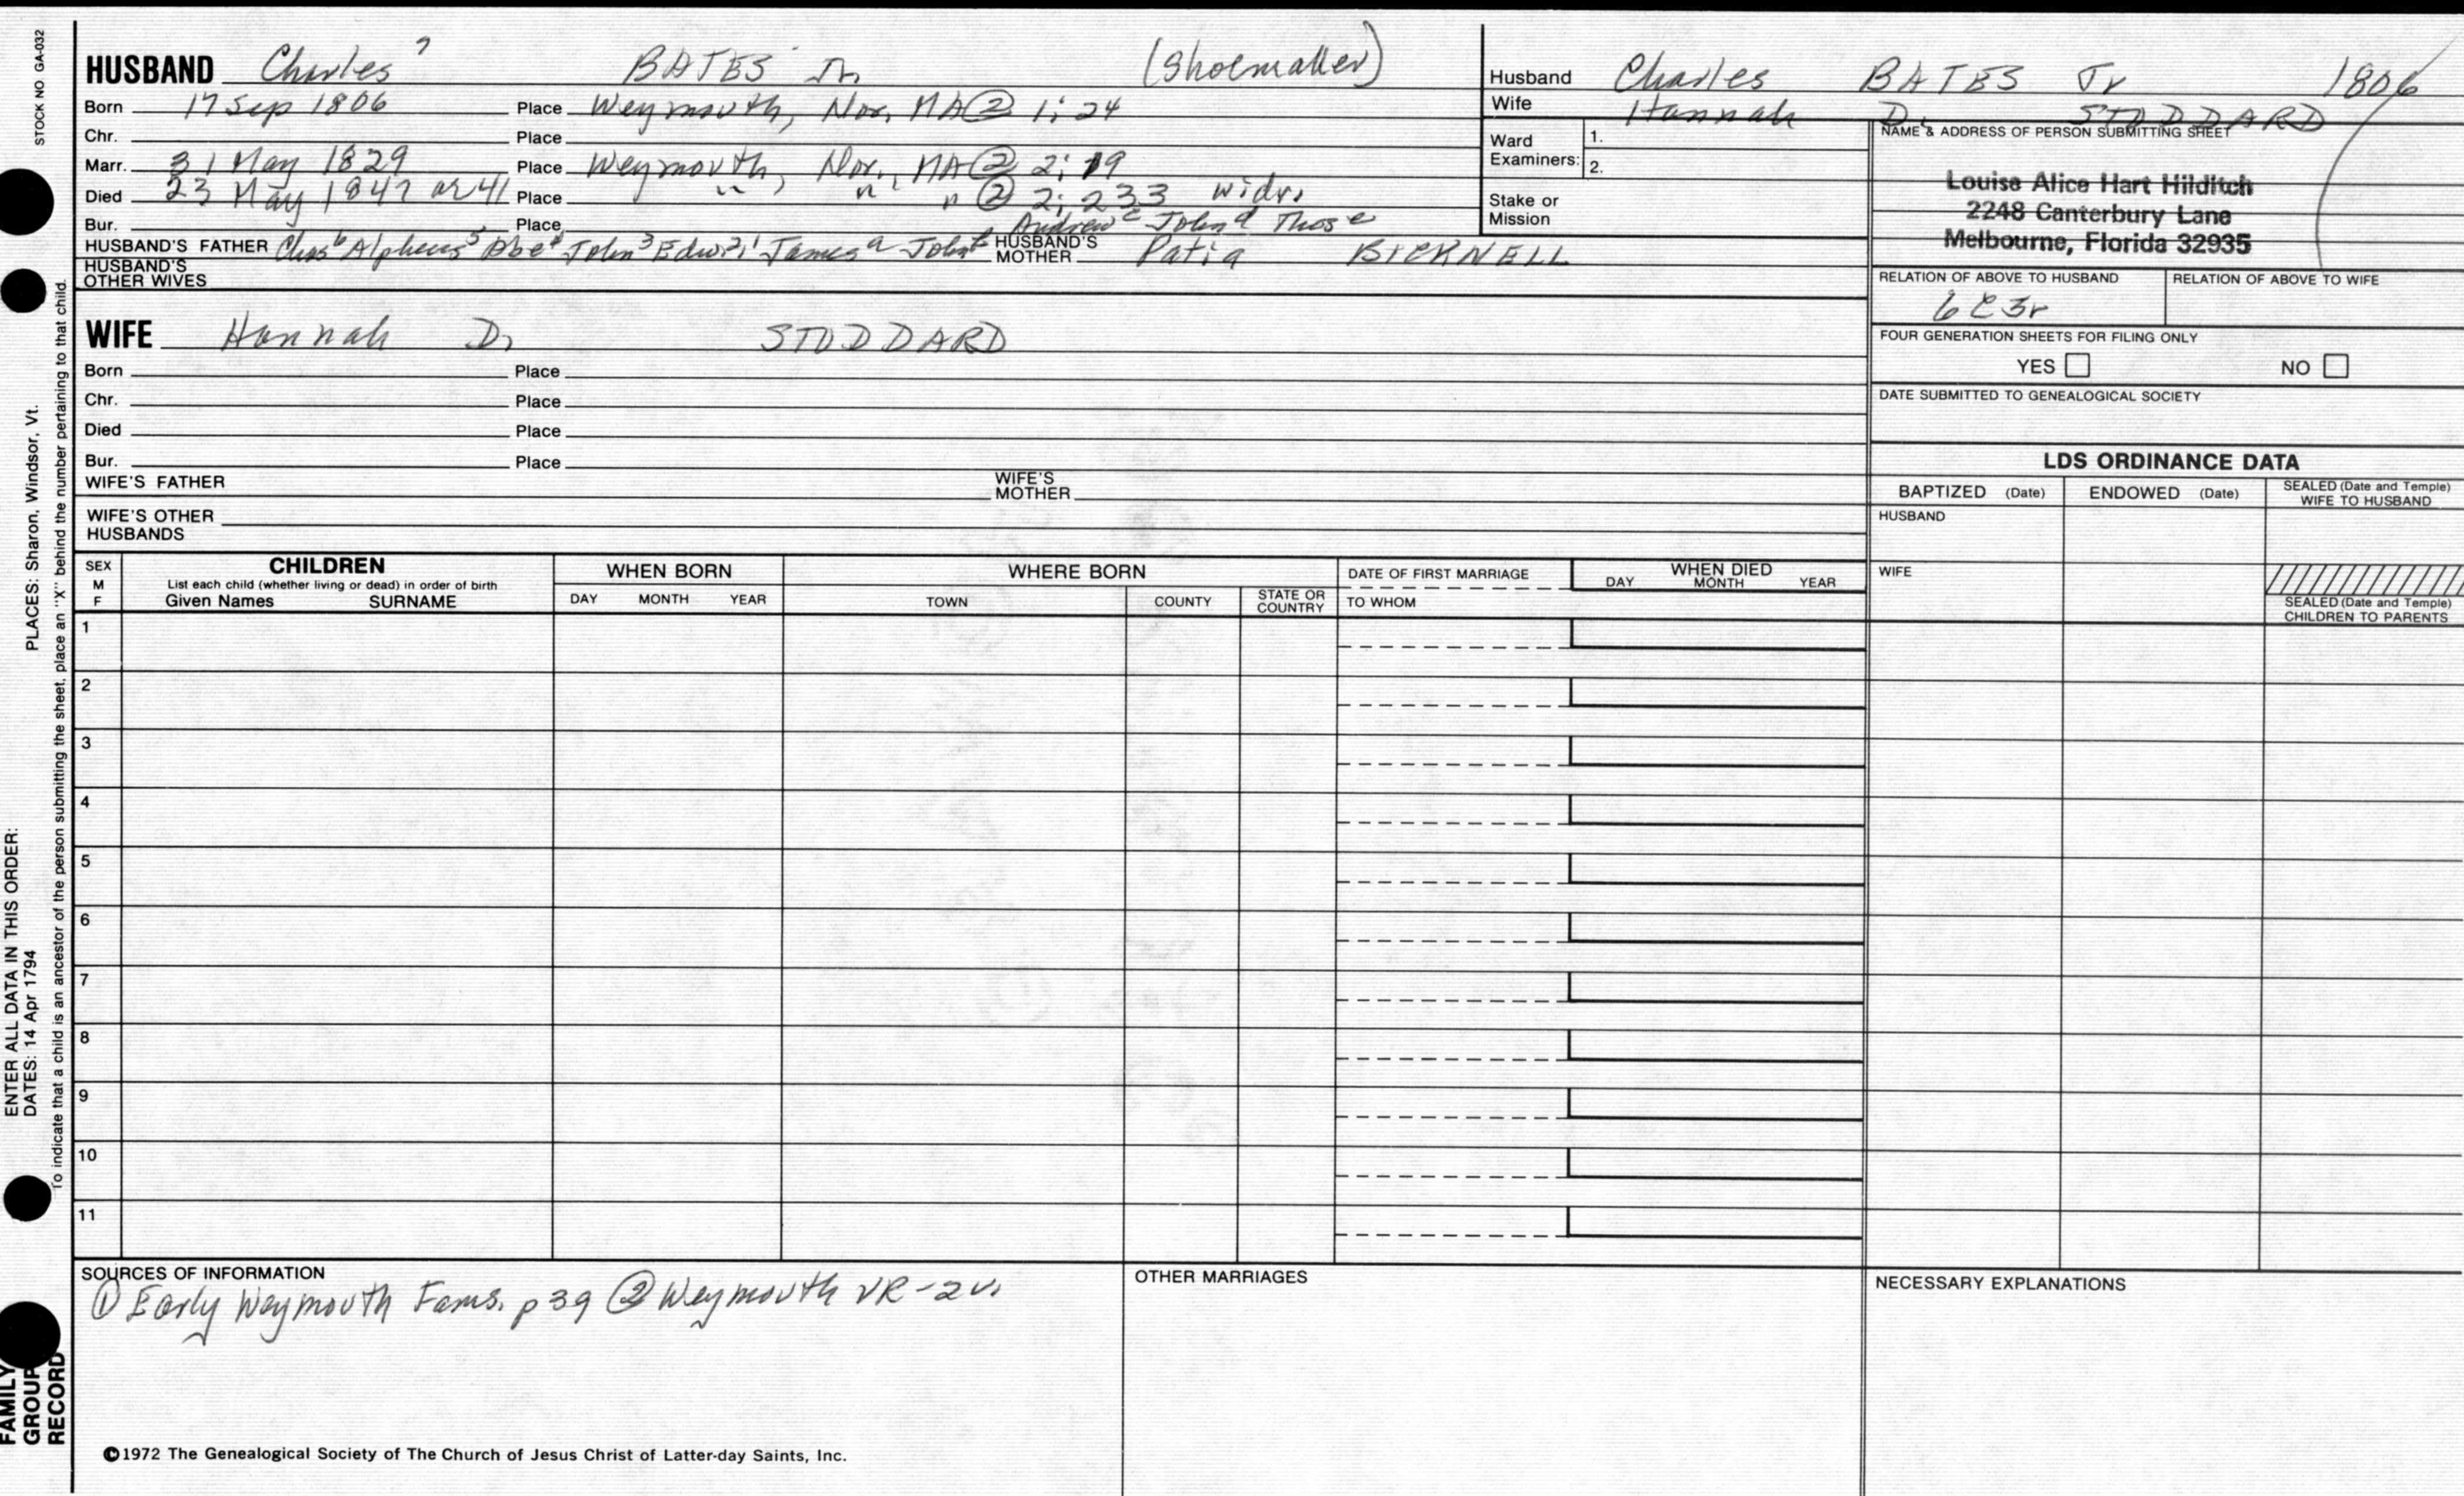 STOCK NO GA-032
HUSBAND Charles 7 BATES Jr. (Shoemaker)
Born 17 Sep 1806 Place Weymouth, Nor, MA ② 1:24
Chr. Place
Marr. 31 May 1829 Place Weymouth, Nor., MA ② 2:19
Died 23 May 1847 or 41 Place " " " ② 2:233 widr.
Bur. Place
Andrew c John d Thos e
HUSBAND'S FATHER Chas 6 Alpheus 5 Abe 4 John 3 Edw 2,1 James a John b HUSBAND'S MOTHER BICKNELL
HUSBAND'S OTHER WIVES
WIFE Hannah D. STODDARD
Born Place
Chr. Place
Died Place
Bur. Place
WIFE'S FATHER WIFE'S MOTHER
WIFE'S OTHER HUSBANDS
Husband Charles BATES Jr 1806
Wife Hannah D. STODDARD
Ward Examiners: 1.
2.
Stake or Mission
NAME & ADDRESS OF PERSON SUBMITTING SHEET
Louise Alice Hart Hilditch
2248 Canterbury Lane
Melbourne, Florida 32935
RELATION OF ABOVE TO HUSBAND RELATION OF ABOVE TO WIFE
6C3r
FOUR GENERATION SHEETS FOR FILING ONLY
YES NO
DATE SUBMITTED TO GENEALOGICAL SOCIETY
LDS ORDINANCE DATA
BAPTIZED (Date) ENDOWED (Date) SEALED (Date and Temple) WIFE TO HUSBAND
HUSBAND
WIFE
SEALED (Date and Temple)
CHILDREN TO PARENTS
SEX M F
CHILDREN
List each child (whether living or dead) in order of birth
Given Names SURNAME
WHEN BORN
DAY MONTH YEAR
WHERE BORN
TOWN COUNTY STATE OR COUNTRY
DATE OF FIRST MARRIAGE
TO WHOM
WHEN DIED
DAY MONTH YEAR
1
2
3
4
5
6
7
8
9
10
11
SOURCES OF INFORMATION
① Early Weymouth Fams. p 39 ② Weymouth VR - 2 v.
OTHER MARRIAGES
NECESSARY EXPLANATIONS
©1972 The Genealogical Society of The Church of Jesus Christ of Latter-day Saints, Inc.
ENTER ALL DATA IN THIS ORDER:
DATES: 14 Apr 1794 PLACES: Sharon, Windsor, Vt.
To indicate that a child is an ancestor of the person submitting the sheet, place an "X" behind the number pertaining to that child.
FAMILY
GROUP
RECORD